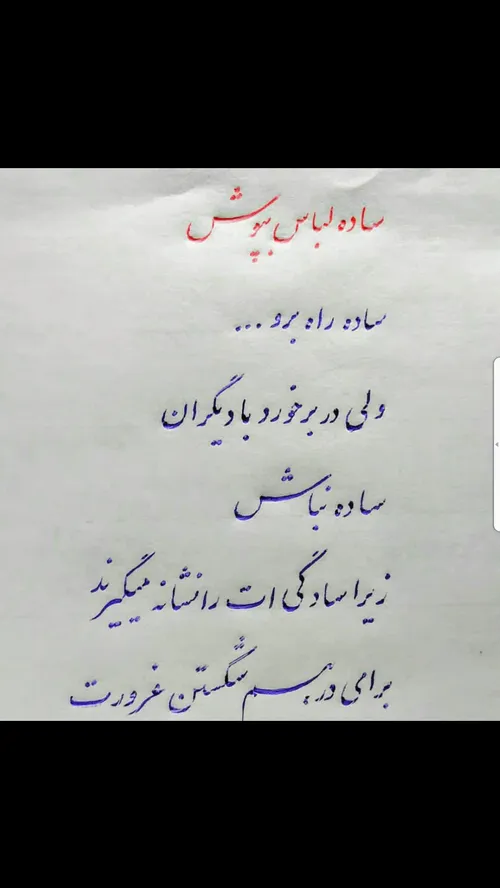 ساده لباس بپوش
ساده راه برو ...
ولی در برخورد با دیگران
ساده نباش
زیرا سادگی ات را نشانه میگیرند
برای درهم شکستن غرورت